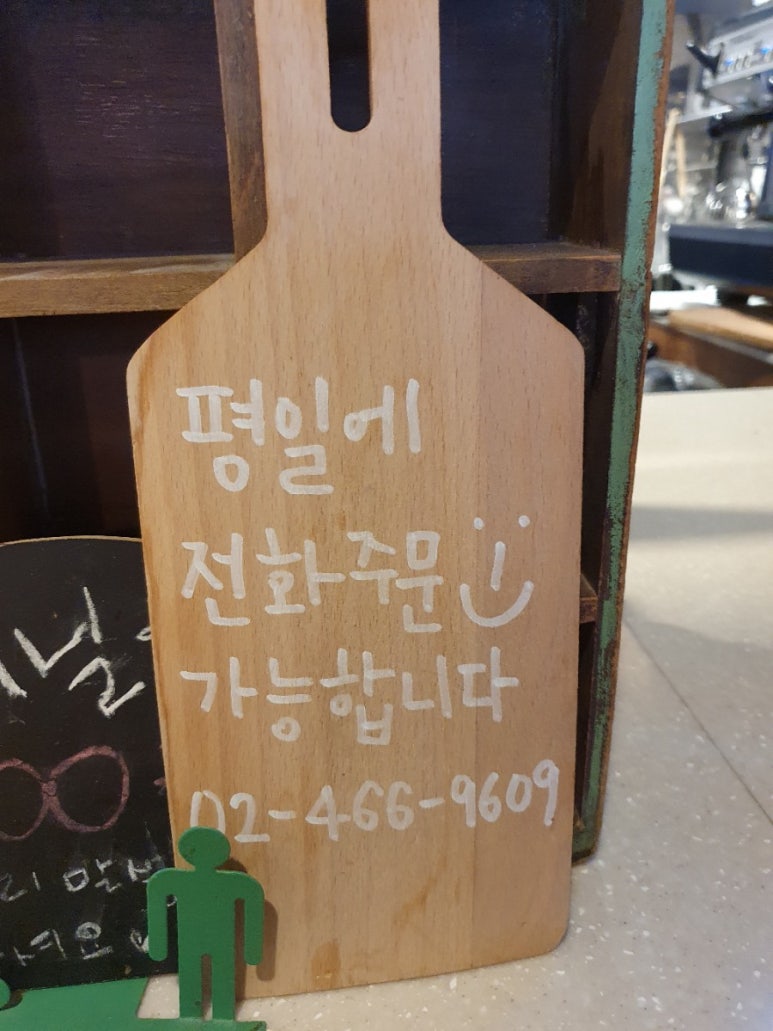 평일에
전화주문
가능합니다
02-466-9609